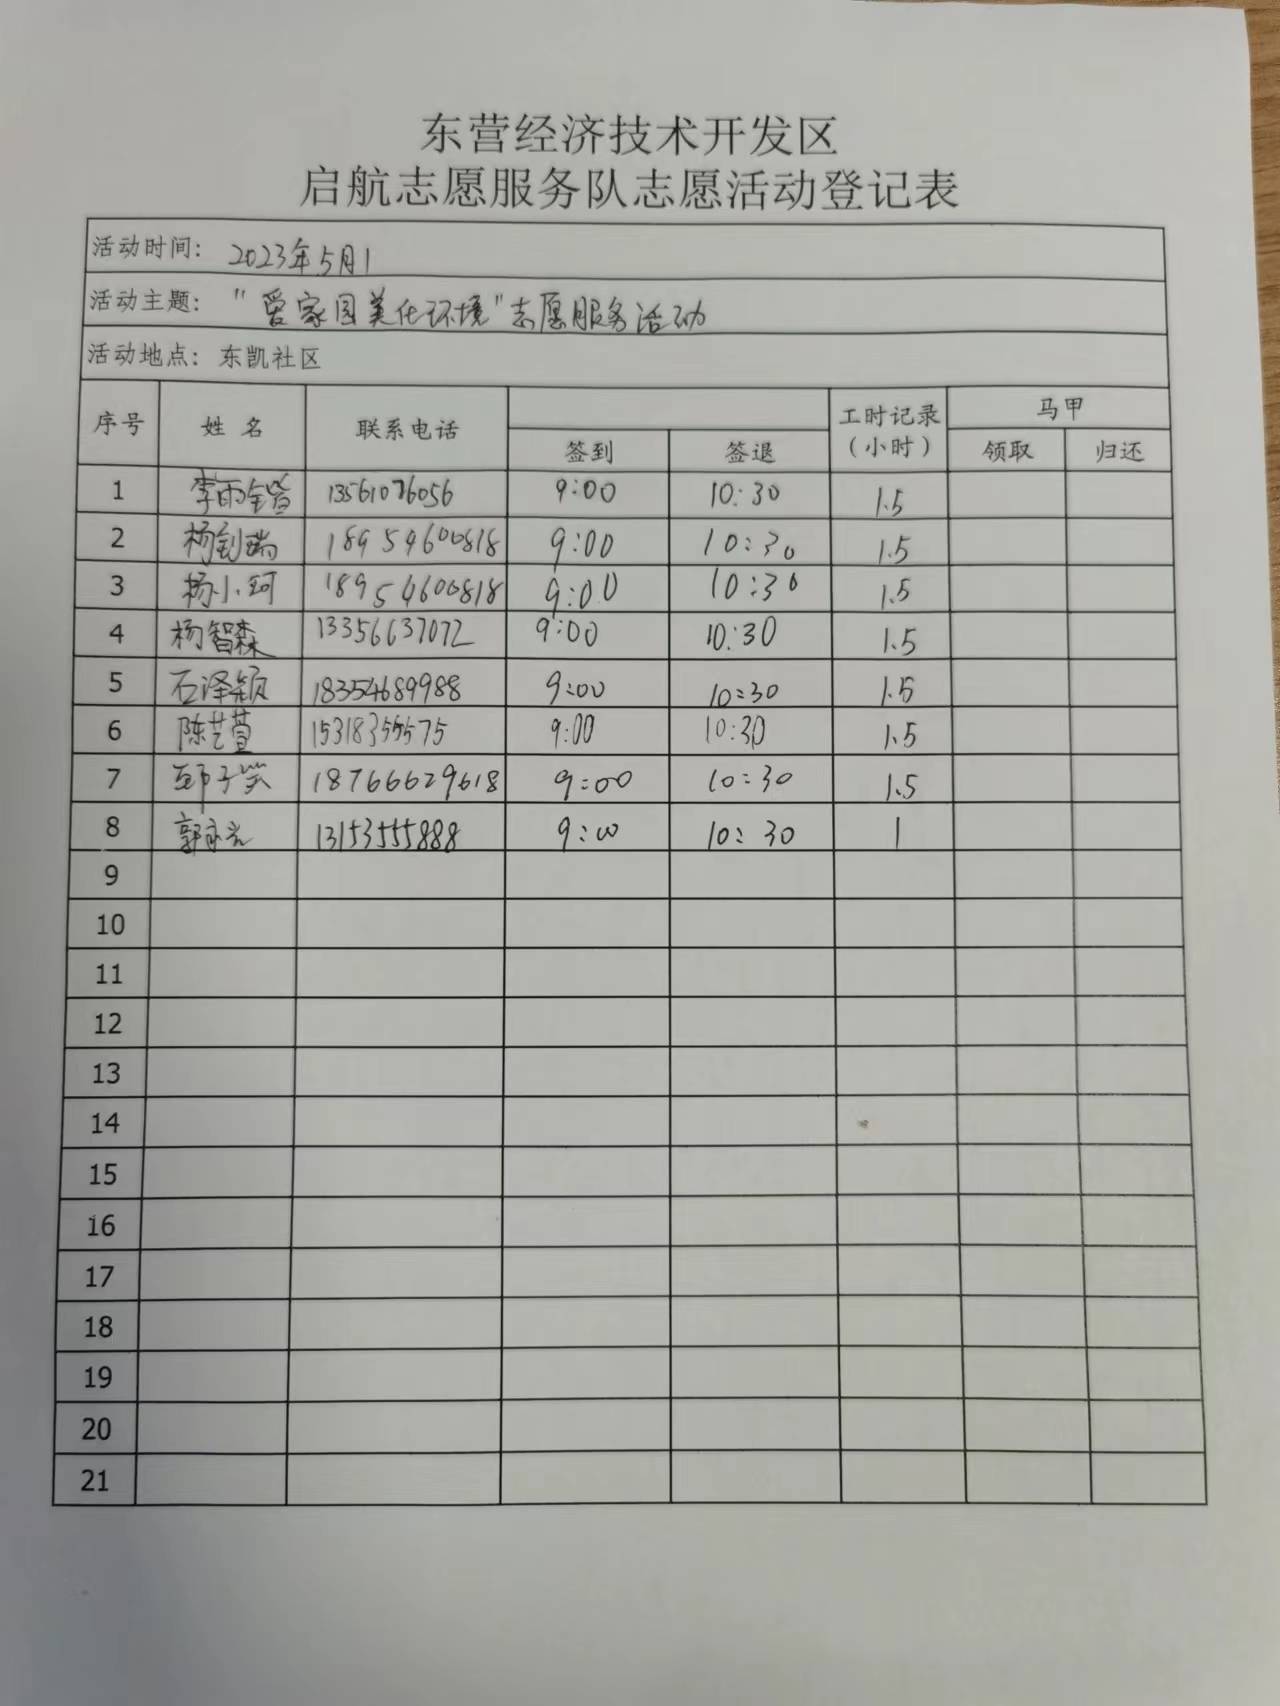 东营经济技术开发区
启航志愿服务队志愿活动登记表
活动时间: 2023年5月1
活动主题: "爱家园美化环境"志愿服务活动
活动地点: 东凯社区
序号 姓名 联系电话 签到 签退 工时记录(小时) 马甲 领取 归还
1 李雨锴 13561076056 9:00 10:30 1.5
2 杨钊瑞 18954600818 9:00 10:30 1.5
3 杨小珂 18954600818 9:00 10:30 1.5
4 杨智森 13356637072 9:00 10:30 1.5
5 石泽颖 18354689988 9:00 10:30 1.5
6 陈艺萱 15318355575 9:00 10:30 1.5
7 子笑 18766629618 9:00 10:30 1.5
8 郭永 13153555888 9:00 10:30 1
9
10
11
12
13
14
15
16
17
18
19
20
21